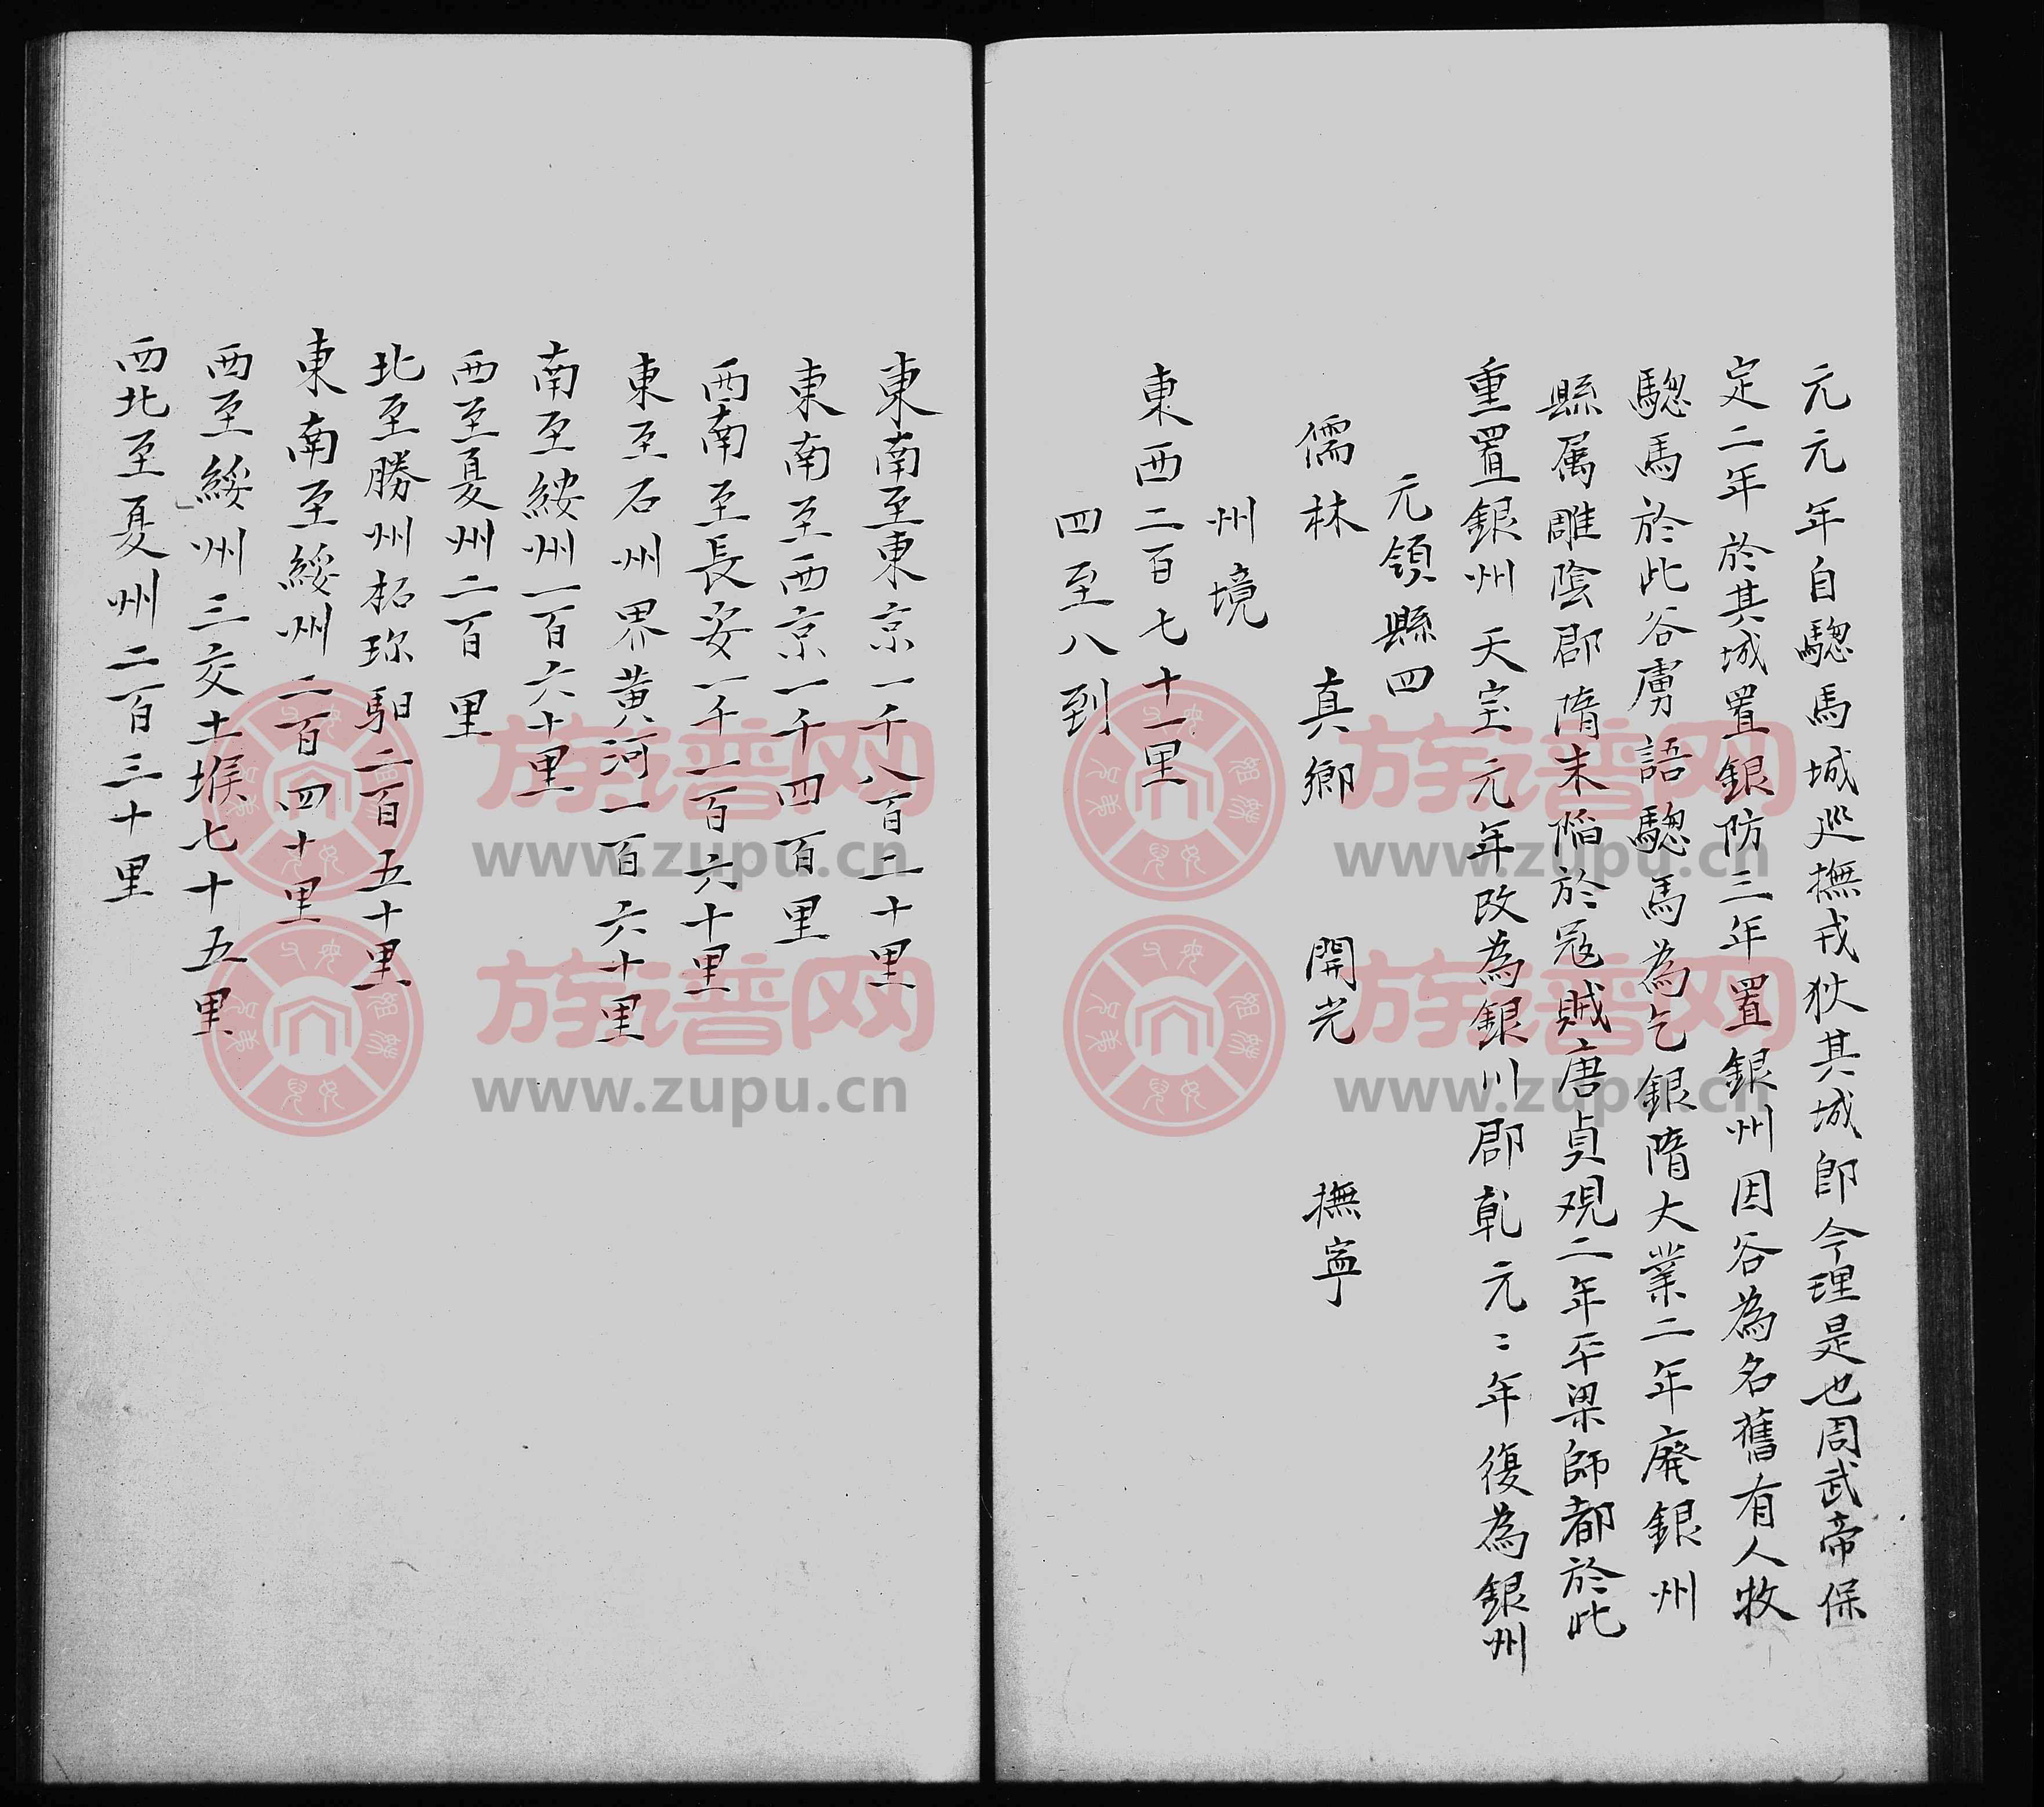 元元年自驄馬城巡撫戎狄其城即今理是也周武帝保
定二年於其城置銀防三年置銀州因谷為名舊有人牧
驄馬於此谷虜語驄馬為乞銀隋大業二年廢銀州
縣属雕陰郡隋末陷於冦賊唐貞观二年平梁師都於此
重置銀州天宝元年改為銀川郡乾元二年復為銀州
元領縣四
儒林 真鄉 開光 撫寧
州境
東西二百七十一里
四至八到
東南至東京一千八百二十里
東南至西京一千四百里
西南至長安一千一百六十里
東至石州界黃河一百六十里
南至綏州一百六十里
西至夏州二百里
北至勝州柘珎駅二百五十里
東南至綏州二百四十里
西至綏州三交土堠七十五里
西北至夏州二百三十里
族谱网
www.zupu.cn
族谱网
www.zupu.cn
族谱网
www.zupu.cn
族谱网
www.zupu.cn